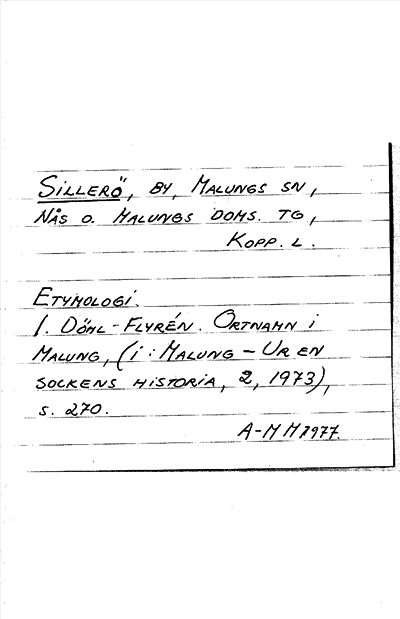 Sillerö, by, Malungs sn,
Nås o. Malungs doms. tg,
Kopp. l.
Etymologi.
I. Döhl-Flyrén. Ortnamn i
Malung, (i: Malung - Ur en
sockens historia, 2, 1973),
s. 270.
A-M H 1977.